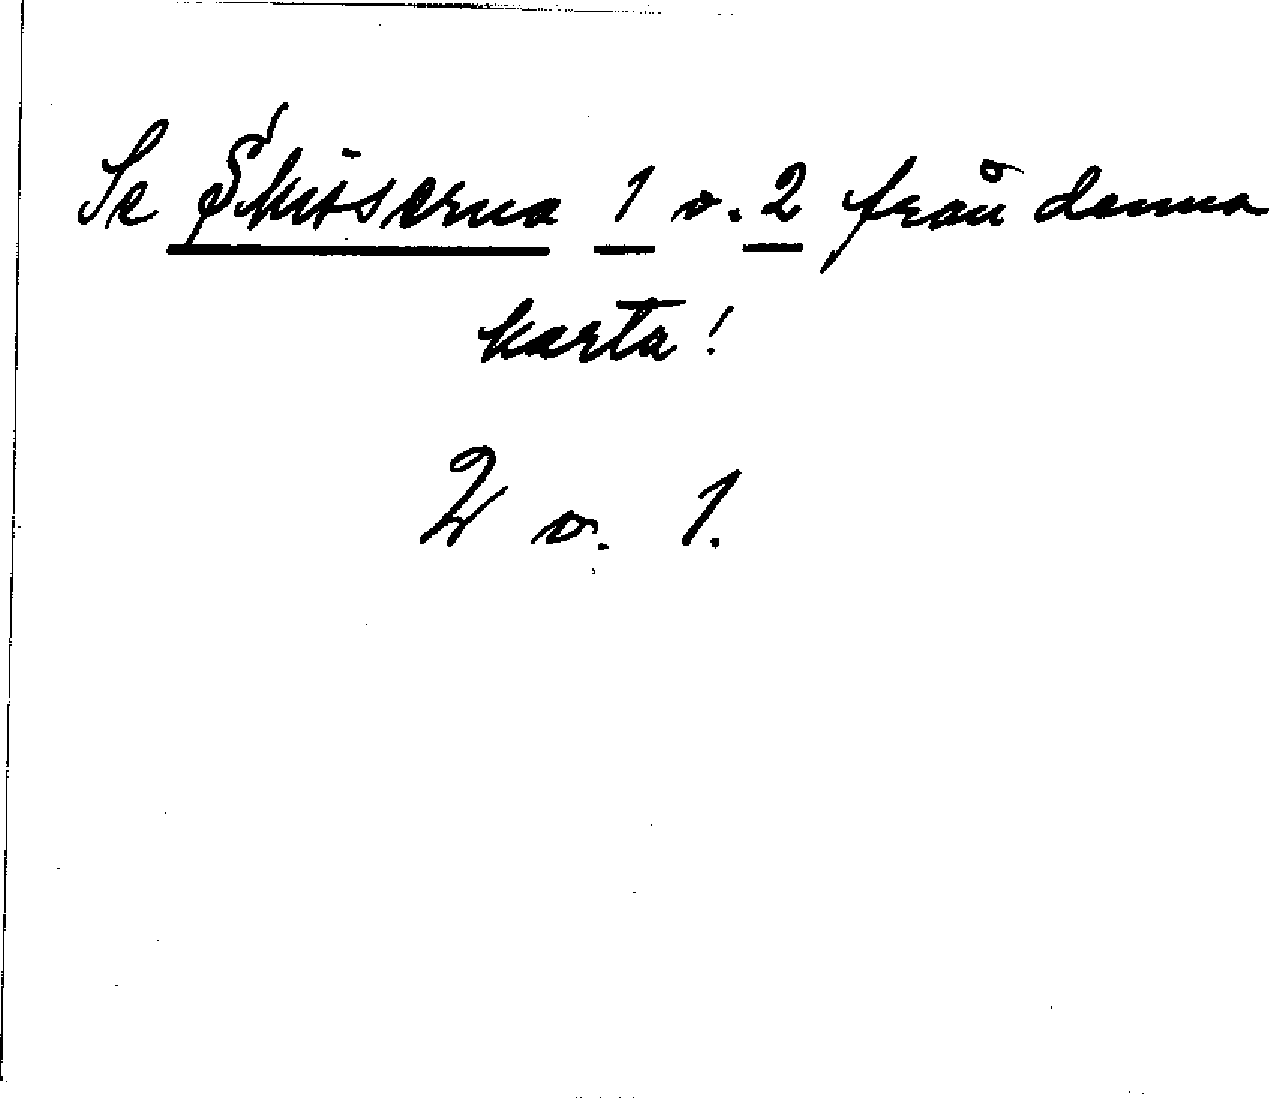 Se Skisserna 1 o. 2 från denna
karta!
2 o. 1.